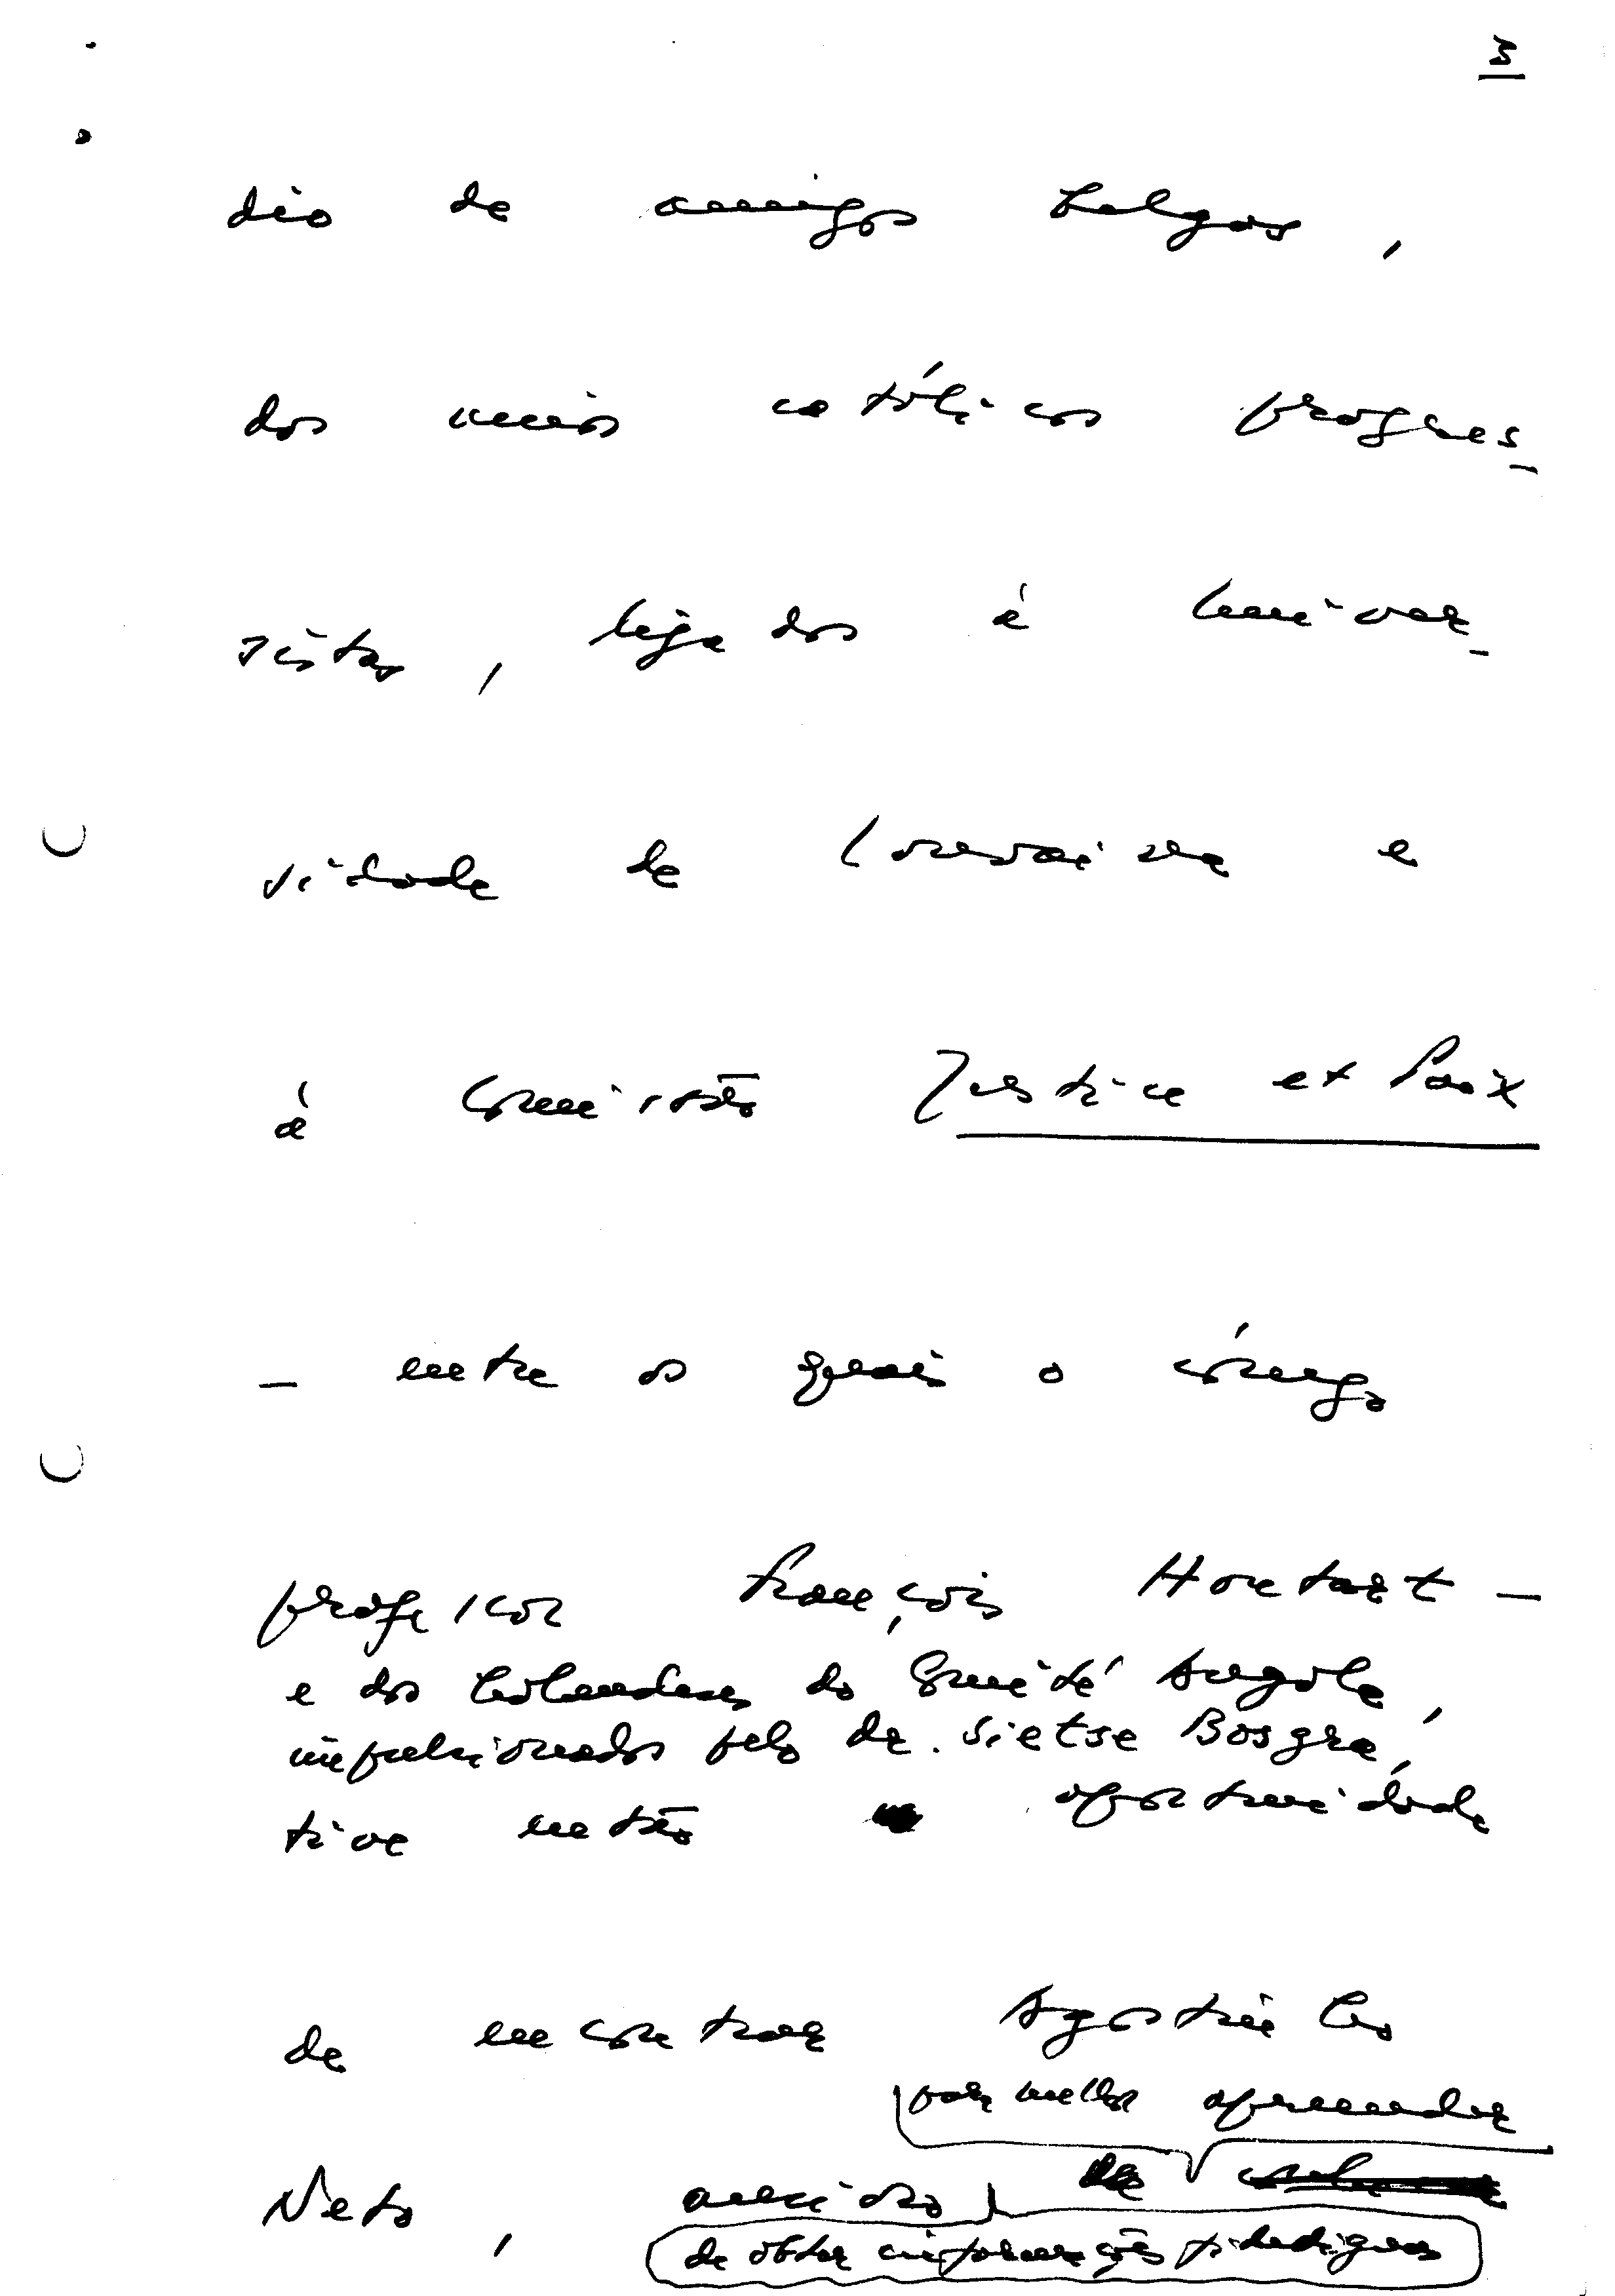 3
dio de amigos belgas,
dos meios católicos progres-
sistas, ligados à Univer-
sidade de Lovaina e
à Comissão Justice et Paix
- entre os quais o cónego
professor François Houtart -
e dos holandeses do Comité Angola,
impulsionados pelo dr. Sietse Bosgra,
tive então oportunidade
de encontrar Agostinho
para melhor apreender
Neto, ansioso
de obter informações fidedignas